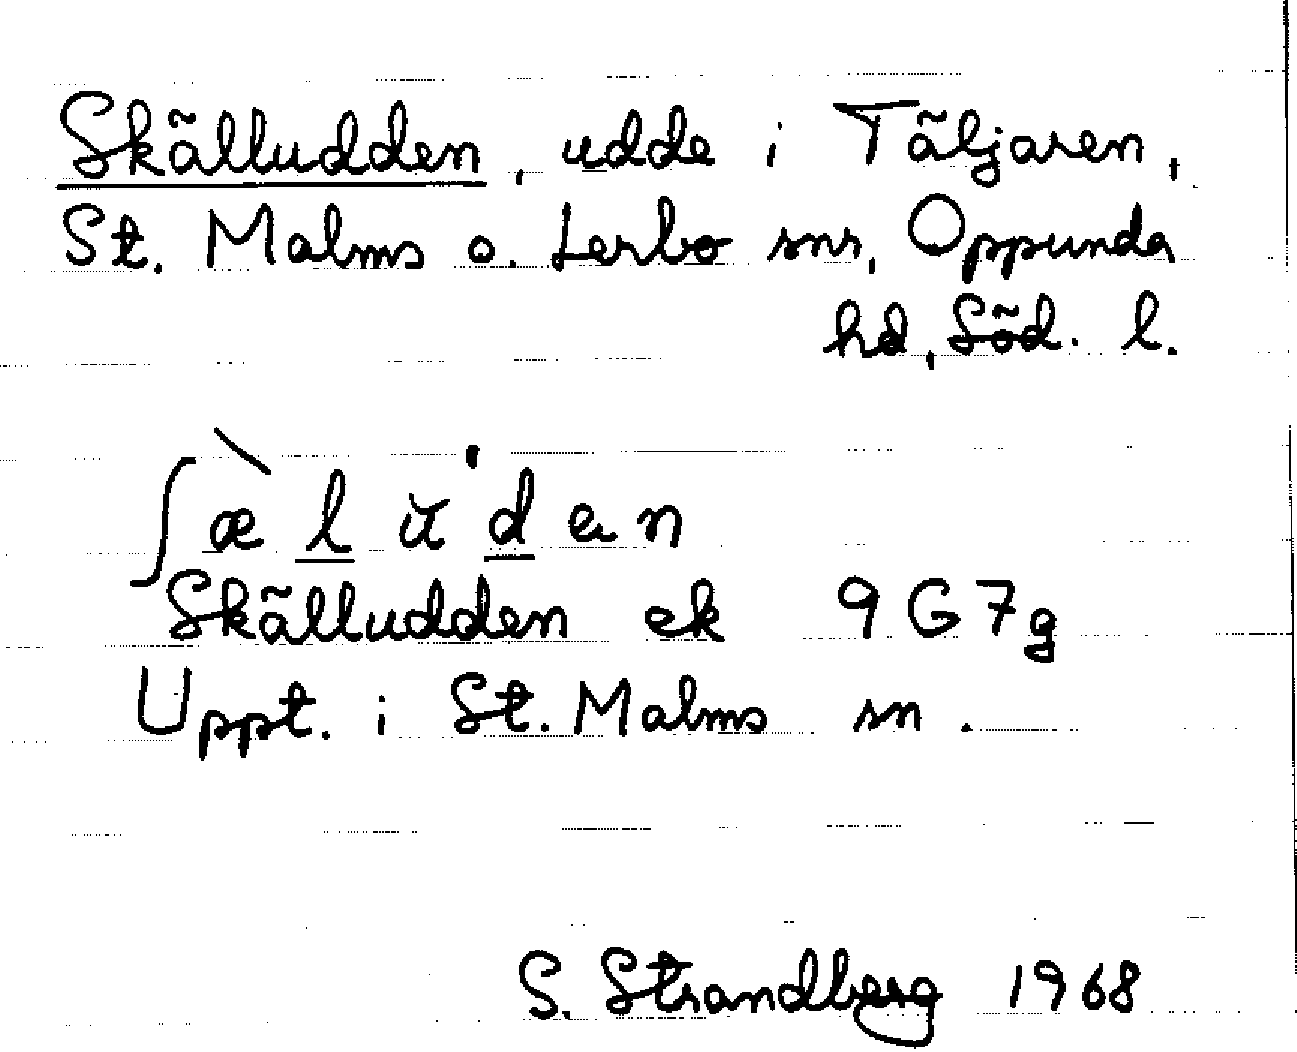 Skälludden, udde i Täljaren,
St. Malms o. Lerbo snr, Oppunda
hd, Söd. l.
ʃæ̀lŭ'den
Skälludden ek 9G7g
Uppt. i St. Malms sn.
S. Strandberg 1968